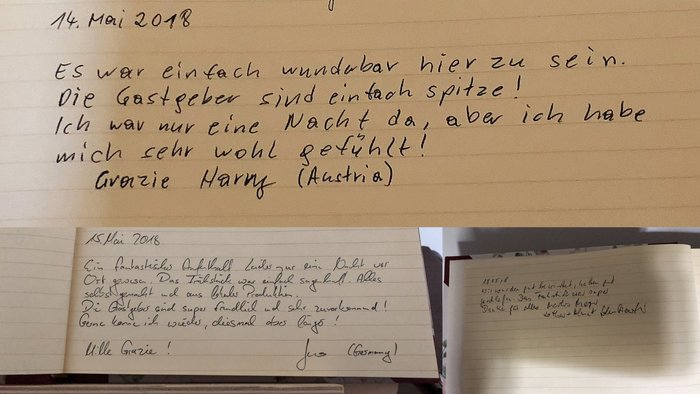 14. Mai 2018
Es war einfach wundabar hier zu sein.
Die Gastgeber sind einfach spitze!
Ich war nur eine Nacht da, aber ich habe
mich sehr wohl gefühlt!
Grazie Harry (Austria)
15. Mai 2018
Ein fantastischer Aufenthalt leider nur eine Nacht vor
Ort gewesen. Das Frühstück war einfach sagenhaft. Alles
selbstgemacht und aus lokalen Produkten.
Die Gastgeber sind super freundlich und sehr zuvorkommend!
Gerne komme ich wieder, diesmal aber länger!
Mille Grazie!
(Germany)
18.05.18
Wir wurden gut bewirtet, haben gut
geschlafen. Das Frühstück war super
Danke für alles